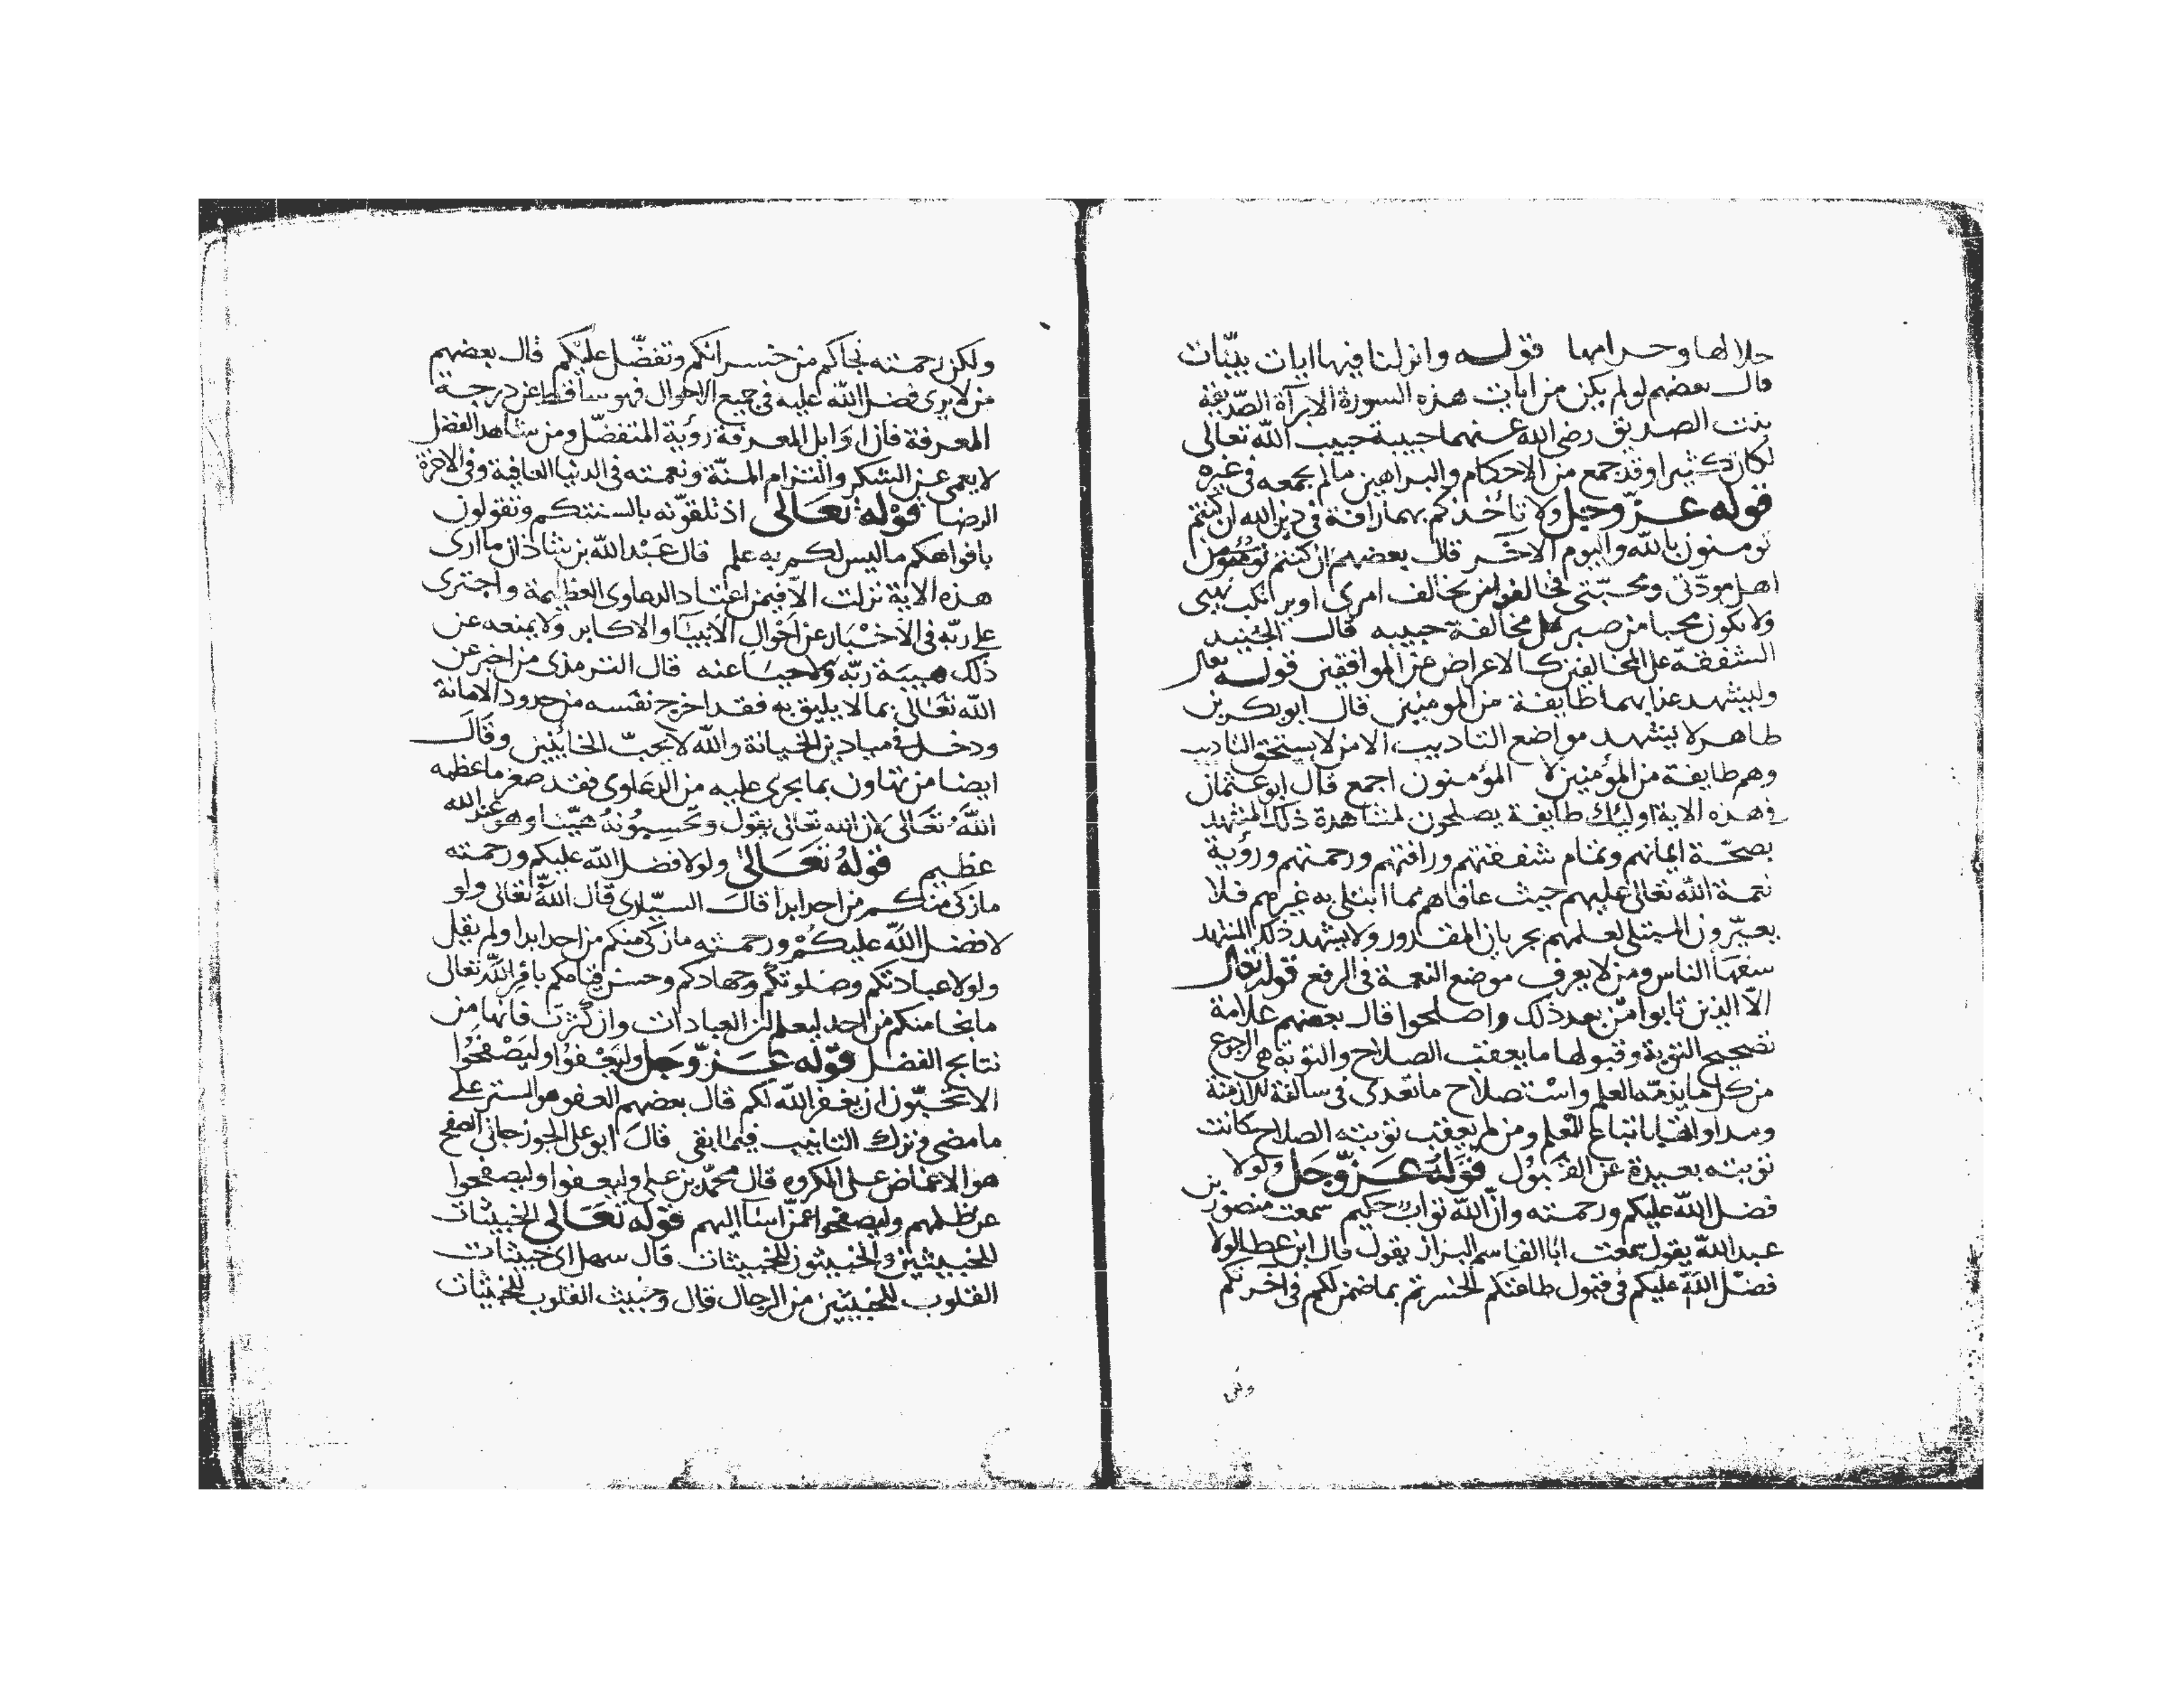 حلالها وحرامها قوله وانزلنا فيها ايات بيّنات
قال بعضهم لو لم يكن من ايات هذه السورة الا براة الصّديقة
بنت الصديق رضى الله عنهما حبيبة حبيب الله تعالى
لكان كثيرا وقد جمع من الاحكام والبراهين مالم يجمعه فى غيره
قوله عزّ وجل ولا تاخذكم بهما رافة فى دين الله ان كنتم
تومنون بالله واليوم الاخر قال بعضهم ان كنتم تومنون من
اهل مودّتى ومحبّتى فخالفوا من يخالف امرى او يرتكب نهيى
ولا يكون محبا من صبر على مخالفة حبيبه قال الجنيد
الشفقة على المخالفين كالاعراض عن الموافقين قوله تعالى
وليشهد عذابهما طايفة من المومنين قال ابو بكر بن
طاهر لا يشهد مواضع التاديب الا من لا يستحق التاديب
وهم طايفة من المؤمنين لا المؤمنون اجمع قال ابو عثمان
فى هذه الاية اوليك طايفة يصلحون لمشاهدة ذلك المشهد
بصحّة ايمانهم وتمام شفقتهم ورافتهم ورحمتهم ورؤية
نعمة الله تعالى عليهم حيث عافاهم مما ابتلى به غيرهم فلا
يعيّرون المبتلى لعلمهم بجريان المقدور ولا يشهد ذلك المشهد
سفهآ الناس ومن لا يعرف موضع النعمة فى الرفع قوله تعالى
الا الذين تابوا من بعد ذلك واصلحوا قال بعضهم علامة
تصحيح التوبة وقبولها ما يعقب الصلاح والتوبة هى الرجوع
من كل ما يذمّه العلم واستصلاح ما تعدى فى سالفة الازمنة
ومداواتها باتباع العلم ومن لم يعقب توبته الصلاح كانت
توبته بعيدة عن القبول قوله عزّ وجل ولولا
فضل الله عليكم ورحمته وانّ الله تواب حكيم سمعت منصور بن
عبد الله يقول سمعت ابا القاسم البزاز يقول قال ابن عطا لولا
فضل الله عليكم فى قبول طاعتكم لخسرتم بما ضمن لكم فى اخرتكم
ولكن رحمته نجاكم من خسرانكم وتفضّل عليكم قال بعضهم
من لا يرى فضل الله عليه فى جميع الاحوال فهو ساقط عن درجة
المعرفة فان اوايل المعرفة رؤية المتفضّل ومن شاهد الفضل
لا يعمى عن الشكر والتزام المنّة ونعمته فى الدنيا العافية وفى الاخرة
الرضا قوله تعالى اذ تلقّونه بالسنتكم وتقولون
بافواهكم ما ليس لكم به علم قال عبد الله بن شاذان ما ارى
هذه الاية نزلت الا فيمن اعتاد الدعاوى العظيمة واجترى
على ربّه فى الاخبار عن احوال الانبيآ والاكابر ولا يمنعه عن
ذلك هيبة ربّه ولا حيا عنه قال الترمذى من اخبر عن
الله تعالى بما لا يليق به فقد اخرج نفسه من حدود الامانة
ودخل فى ميادين الخيانة والله لا يحبّ الخاينين وقال
ايضا من تهاون بما يجرى عليه من الدعاوى فقد صغر ما عظمه
الله تعالى لان الله تعالى يقول وتحسبونه هيّنا وهو عند الله
عظيم قوله تعالى ولولا فضل الله عليكم ورحمته
ما زكى منكم من احد ابدا قال السيّارى قال الله تعالى ولو
لا فضل الله عليكم ورحمته ما زكى منكم من احد ابدا ولم يقل
ولولا عبادتكم وصلوتكم وجهادكم وحسن قيامكم بامر الله تعالى
ما نجا منكم من احد ليعلم ان العبادات وان كثرت فانها من
نتايج الفضل قوله عزّ وجل وليعفوا وليصفحوا
الا تحبّون ان يغفر الله لكم قال بعضهم العفو هو الستر على
ما مضى وترك التانيب فيما بقى قال ابو على الجوزجانى الصفح
هو الاغماض على المكروه قال محمّد بن على وليعفوا وليصفحوا
عن ظلمهم وليصفحوا عمّن اسآ اليهم قوله تعالى الخبيثات
للخبيثين والخبيثون للخبيثات قال سهل اى خبيثات
القلوب للخبيثين من الرجال قال وخبيث القلوب للخبيثات